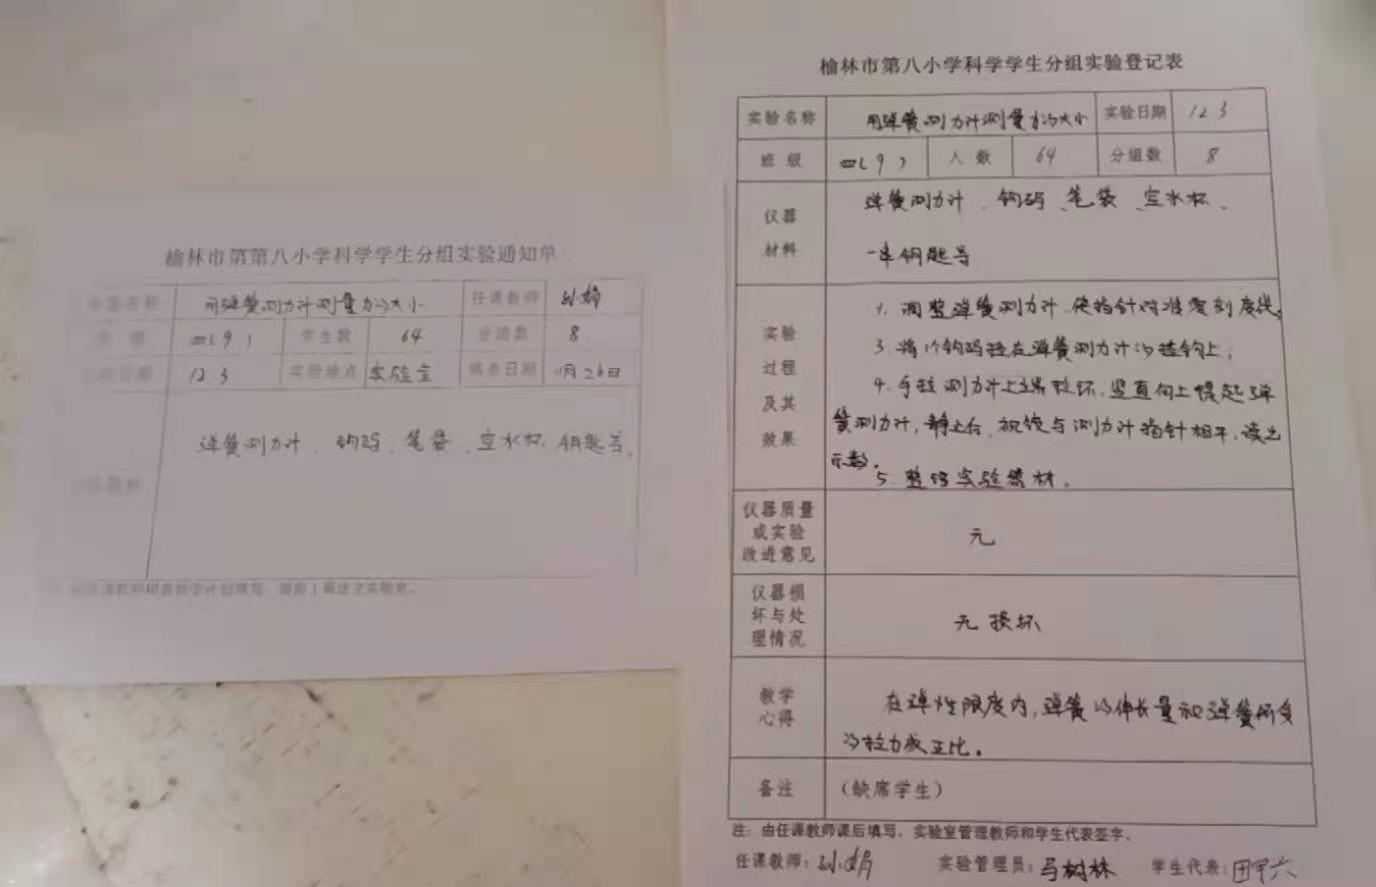 榆林市第第八小学科学学生分组实验通知单
实验名称 用弹簧测力计测量力的大小 任课教师 孙娟
四(9) 学生数 64 分组数 8
12.3 实验地点 实验室 填表日期 11月26日
弹簧测力计、钩码、笔袋、空水杯、钥匙等。
榆林市第八小学科学学生分组实验登记表
实验名称 用弹簧测力计测量力的大小 实验日期 12.3
班级 四(9) 人数 64 分组数 8
仪器材料 弹簧测力计、钩码、笔袋、空水杯、
一串钥匙等
实验过程及其效果 1. 调整弹簧测力计,使指针对准零刻度线。
3. 将1个钩码挂在弹簧测力计的挂钩上;
4. 手拉测力计上端拉环,竖直向上提起弹
簧测力计,静止后,视线与测力计指针相平,读出
示数。
5. 整理实验器材。
仪器质量或实验改进意见 无
仪器损坏与处理情况 无损坏
教学心得 在弹性限度内,弹簧的伸长量和弹簧所受
的拉力成正比。
备注 (缺席学生)
注:由任课教师课后填写,实验室管理教师和学生代表签字。
任课教师:孙娟 实验管理员:马树林 学生代表: